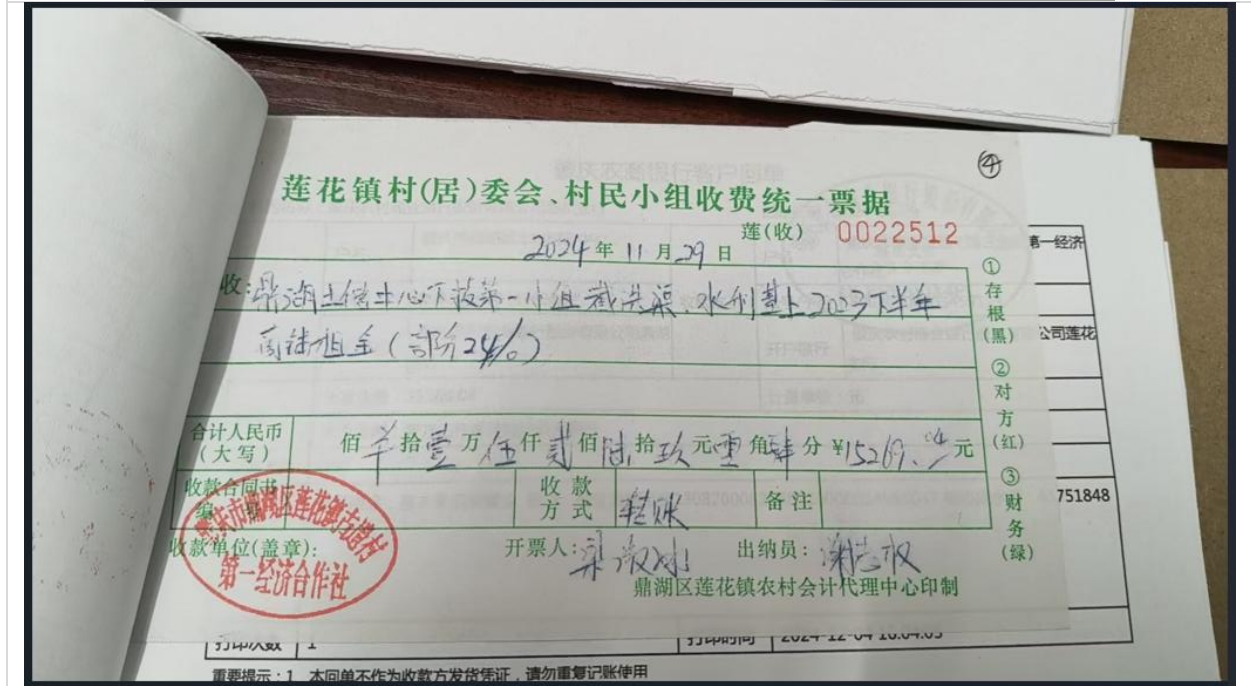 ④
莲花镇村(居)委会、村民小组收费统一票据
莲(收) 0022512
2024年11月29日
收:鼎湖土储中心下拨第一小组截洪渠、水利基上2023下半年
青苗租金(部份24%)
合计人民币(大写) 佰羊拾壹万伍仟贰佰陆拾玖元零角肆分¥15269.04元
收款合同书编号
收款方式 转账 备注
收款单位(盖章): 开票人: 出纳员:
第一经济合作社
鼎湖区莲花镇农村会计代理中心印制
①存根(黑)②对方(红)③财务(绿)
第一经济
公司莲花
751848
打印次数 1 打印时间 2024-12-04 16:04:05
重要提示:1 本回单不作为收款方发货凭证,请勿重复记账使用